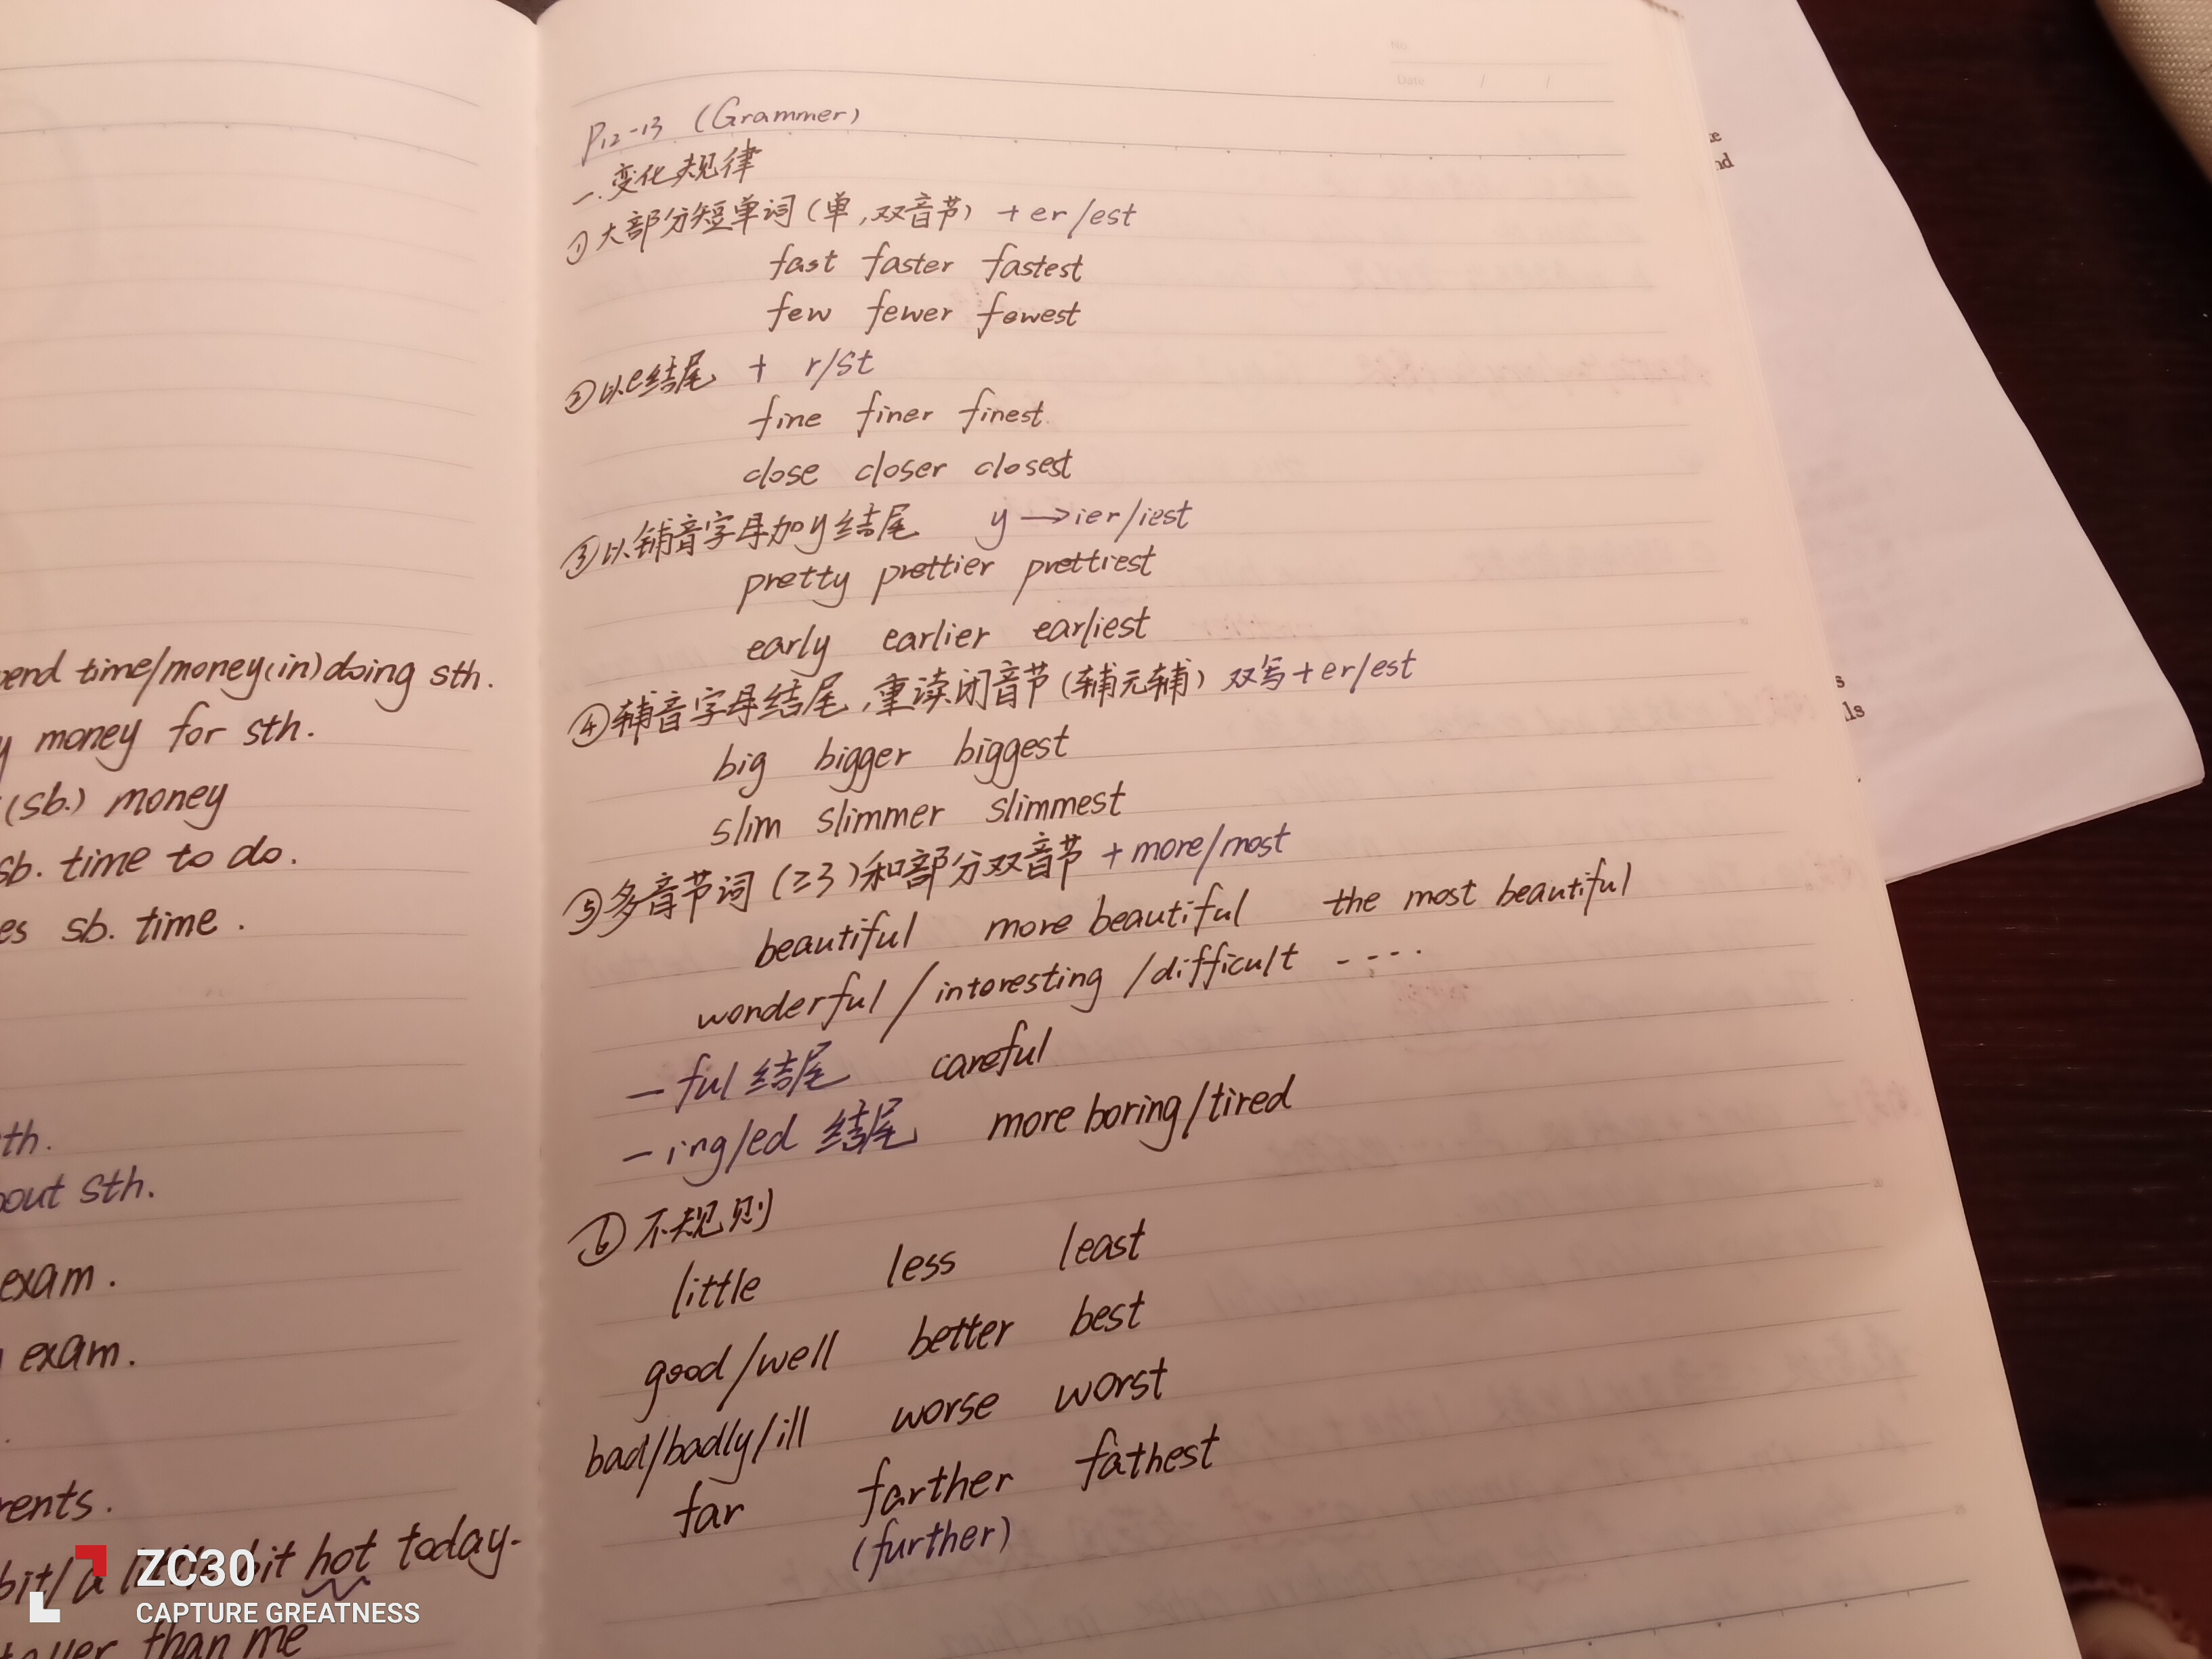 end time/money(in)doing sth.
money for sth.
(sb.) money
sb. time to do.
es sb. time.
th.
out sth.
exam.
exam.
rents.
bit/a little bit hot today.
than me
No
Date / /
P12-13 (Grammer)
一.变化规律
①大部分短单词(单,双音节) +er/est
fast faster fastest
few fewer fewest
②以e结尾 + r/st
fine finer finest.
close closer closest
③以辅音字母加y结尾 y→ier/iest
pretty prettier prettiest
early earlier earliest
④辅音字母结尾,重读闭音节(辅元辅) 双写+er/est
big bigger biggest
slim slimmer slimmest
⑤多音节词(≥3)和部分双音节 +more/most
beautiful more beautiful the most beautiful
wonderful/interesting/difficult ----.
-ful结尾 careful
-ing/ed 结尾 more boring/tired
⑥不规则
little less least
good/well better best
bad/badly/ill worse worst
far farther fathest
(further)
nd
s
ls
ZC30
CAPTURE GREATNESS